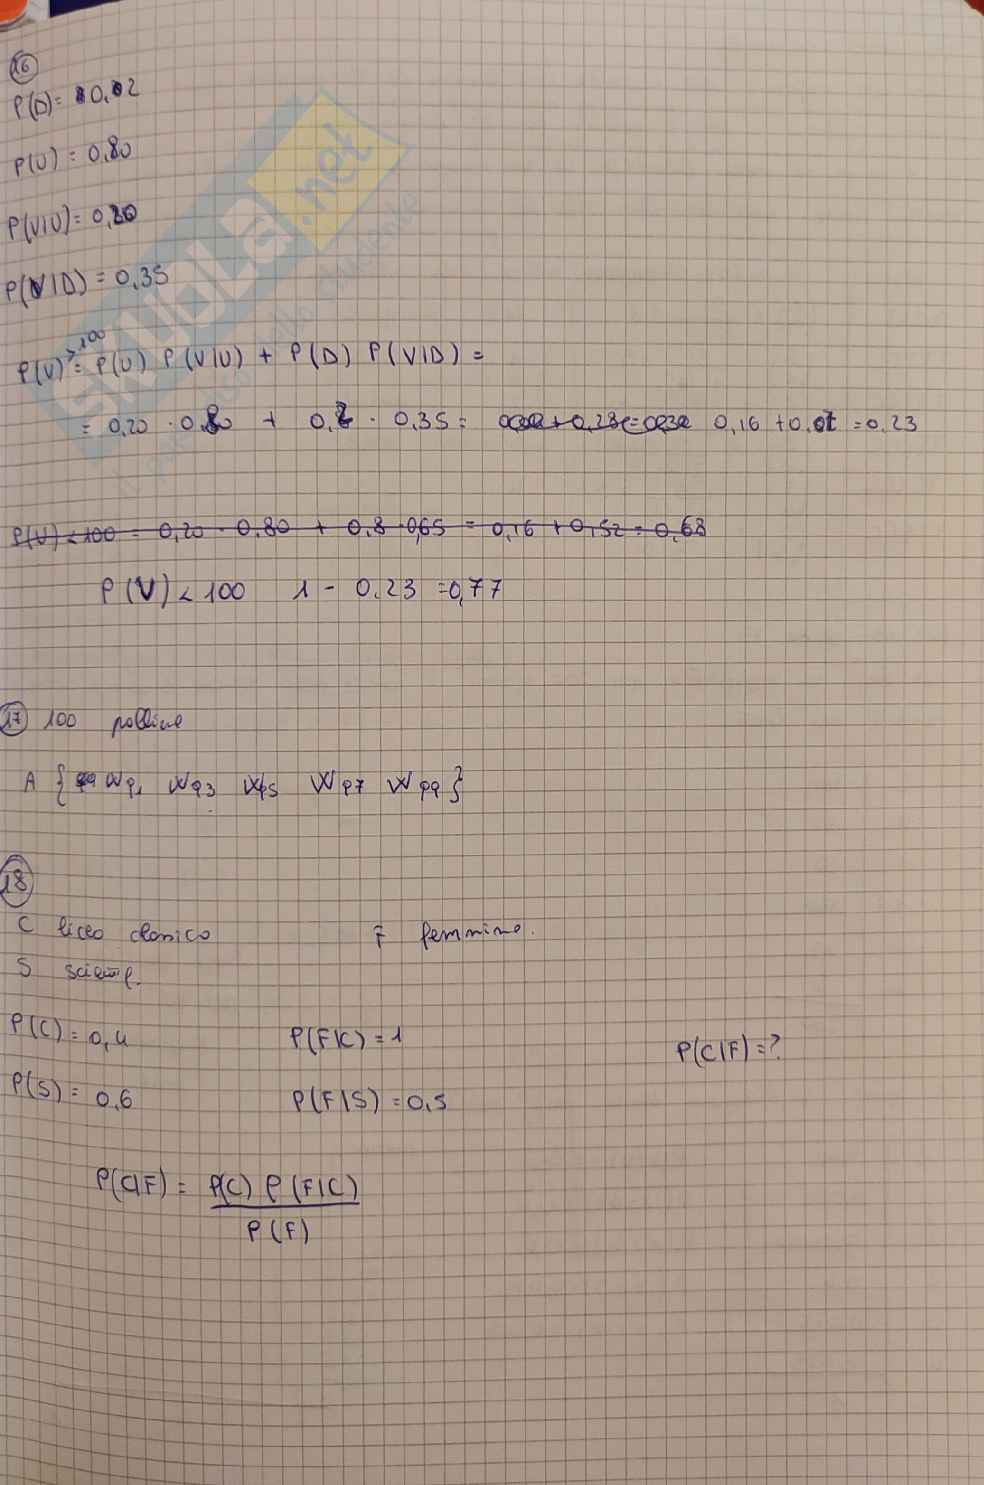 16
P(D) = 0,02
P(U) = 0,80
P(V|U) = 0,20
P(V|D) = 0,35
P(V)>100 = P(U) P(V|U) + P(D) P(V|D) =
= 0,20 · 0,80 + 0,2 · 0,35 = 0,16 + 0,07 = 0,23
P(V) < 100 = 0,20 · 0,80 + 0,8 · 0,65 = 0,16 + 0,52 = 0,68
P(V) < 100 1 - 0,23 = 0,77
17 100 palline
A { W91 W93 W95 W97 W99 }
18
C liceo classico F femmine.
S scientif.
P(C) = 0,4 P(F|C) = 1 P(C|F) = ?
P(S) = 0,6 P(F|S) = 0,5
P(C|F) = P(C) P(F|C)
P(F)
SKUOLA.net